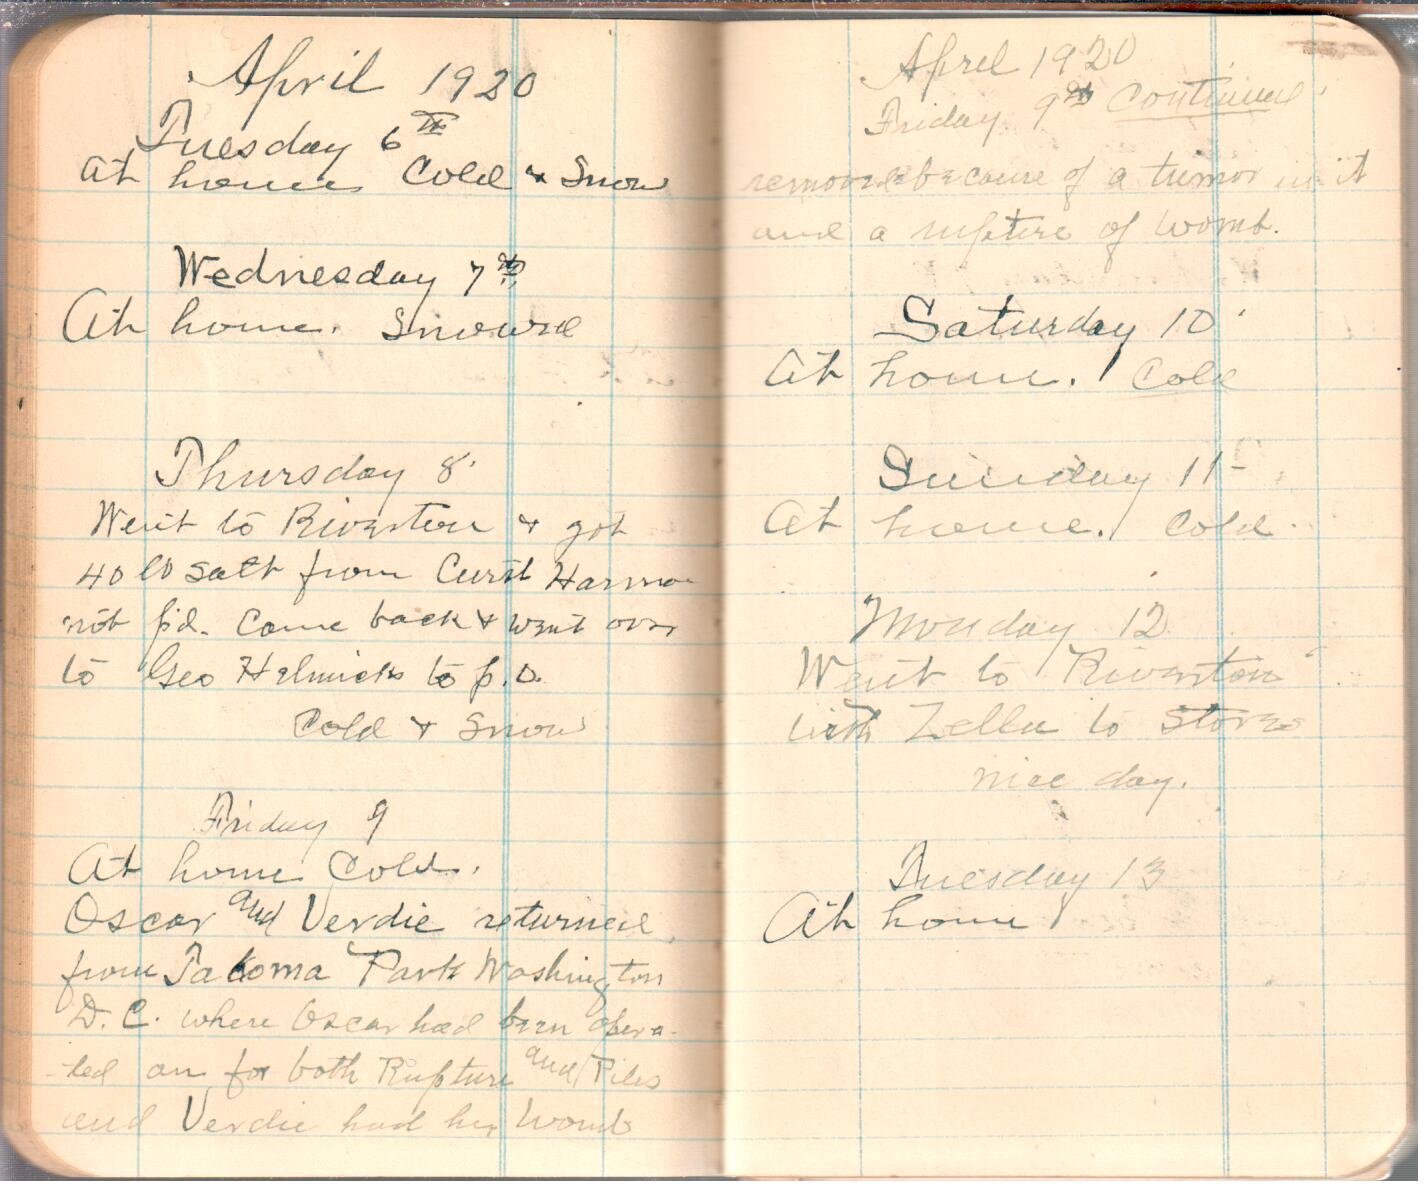 April 1920
Tuesday 6th
At home Cold & Snow
Wednesday 7th
At home. Snowed
Thursday 8
Went to Riverton & got
40 lb salt from Curst Harmon
not p'd. Came back & went over
to Geo Helmicks to p.o.
Cold & Snow
Friday 9
At home Cold.
Oscar and Verdie returned
from Takoma Park Washington
D.C. where Oscar had been opera-
-ted on for both Rupture and Piles
and Verdie had her womb
April 1920
Friday 9th Continued
removed because of a tumor in it
and a rupture of womb.
Saturday 10
At home. Cold
Sunday 11-
At home. Cold.
Monday 12
Went to Riverton
with Zella to Stores
nice day.
Tuesday 13
At home